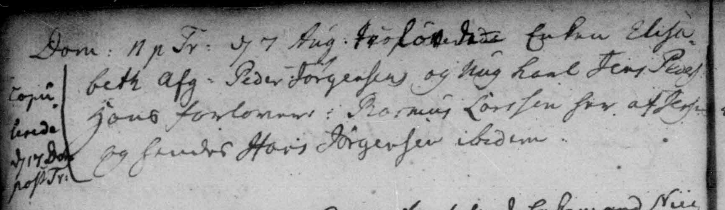 Dom: 11 p Tr: d 7 Aug. Trolovede Enken Elisa-
beth afg. Peder Jörgensens og Ung karl Jens Peder
hans forlovere: Rasmus Larssen her af
og hendes Hans Jörgensen ibidem.
Copu-
lerede
d 17 Dom
post Tr: